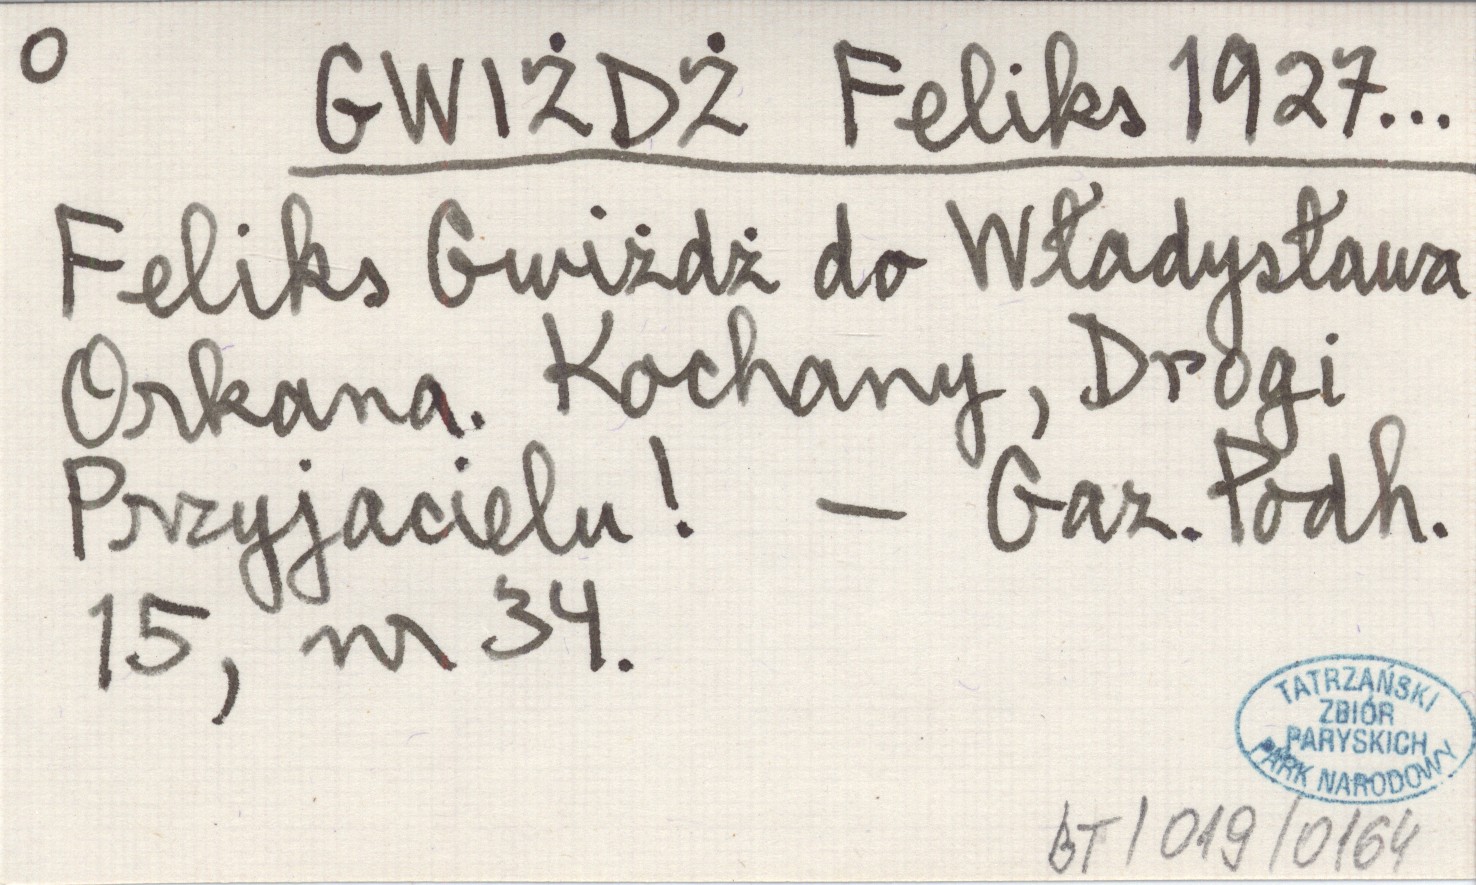 O
GWIŻDŻ Feliks 1927...
Feliks Gwiżdż do Władysława
Orkana. Kochany, Drogi
Przyjacielu! — Gaz. Podh.
15, nr 34.
TATRZAŃSKI
ZBIÓR
PARYSKICH
PARK NARODOWY
BT/019/0164